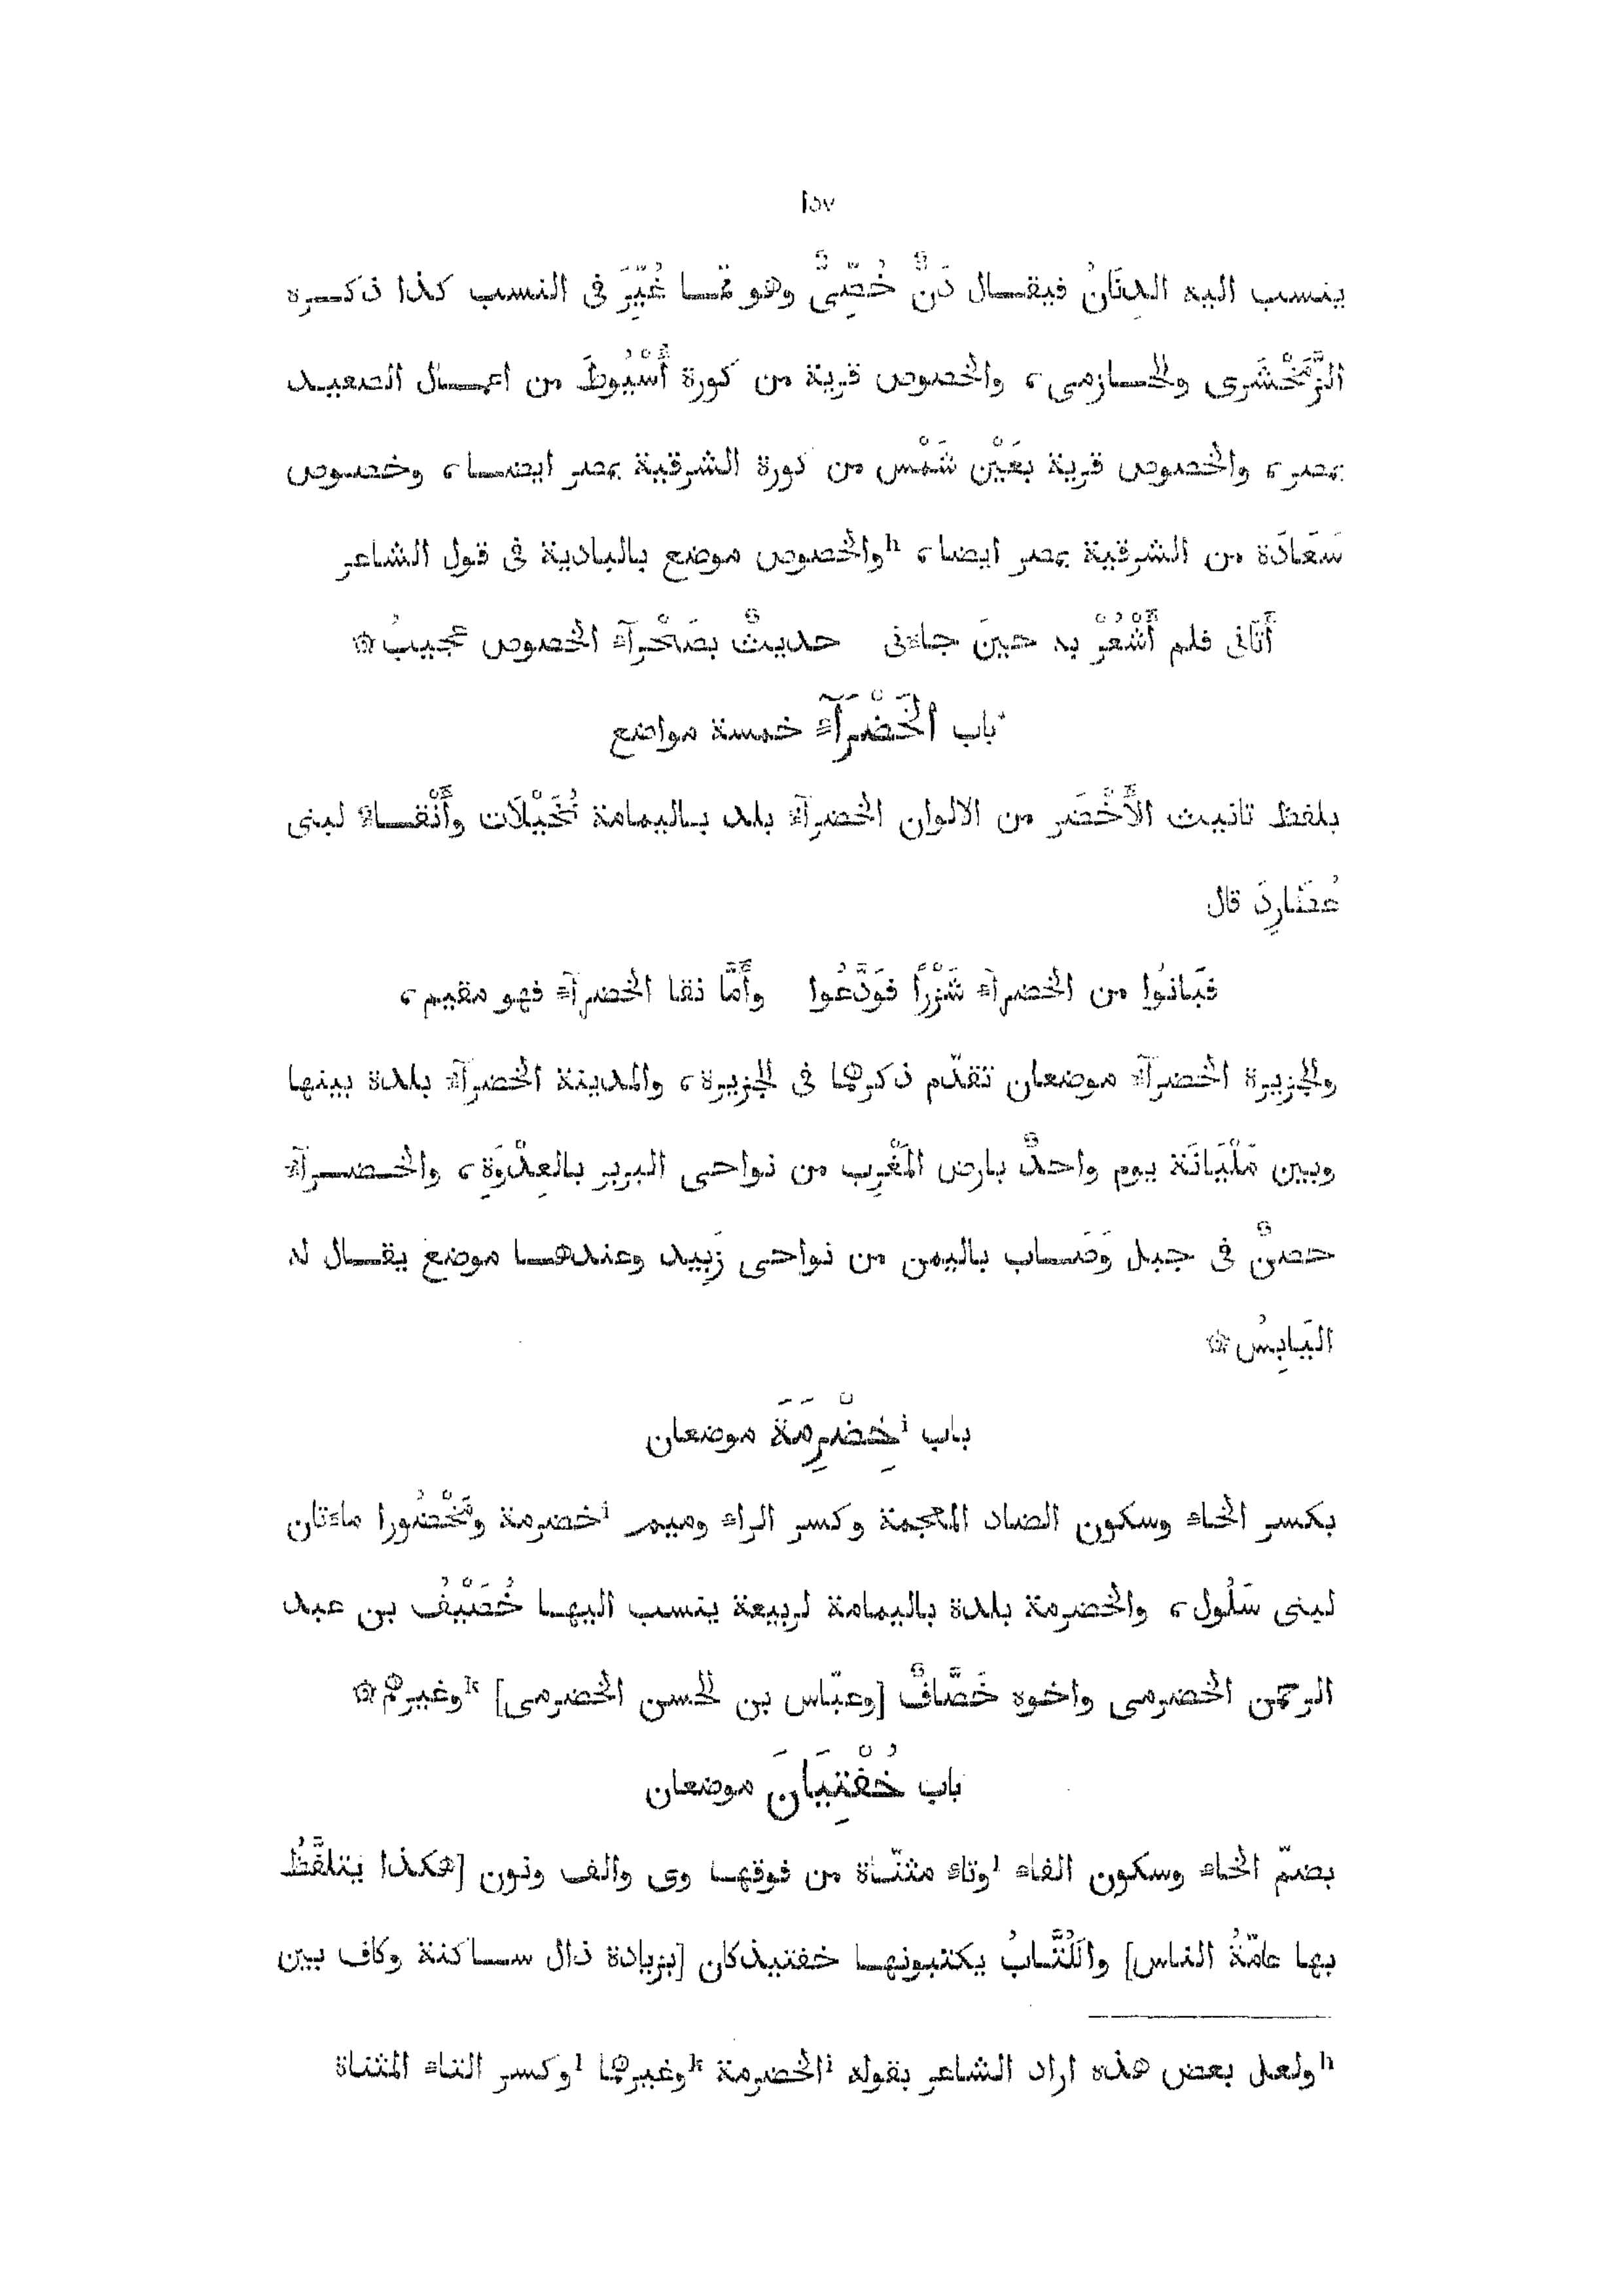 ١٥٧
ينسب اليه الدِنَانُ فيقال دَنٌّ خُصِّىٌّ وهو ممّا غُيِّرَ فى النسب كذا ذكره
الزَّمَخْشَرى والحازمى، والخصوص قرية من كورة أَسْيُوطَ من اعمال الصعيد
بمصر، والخصوص قرية بعَيْن شَمْس من كورة الشرقية بمصر ايضا، وخصوص
سَعَادَة من الشرقية بمصر ايضا، hوالخصوص موضع بالبادية فى قول الشاعر
أَتَانى فلم أَشْعُرْ به حينَ جاءنى حديثٌ بصَحْرآء الخصوص عجيبُ ۞
باب الخَضْرَآء خمسة مواضع
بلفظ تانيث الأَخْضَر من الالوان الخضرآء بلد باليمامة نُخَيْلَات وأَنْقاء لبنى
عُطَارِدَ قال
فبَانُوا من الخضرآء شَزْرًا فوَدَّعُوا وأَمَّا نقا الخضرآء فهو مقيم،
والجزيرة الخضرآء موضعان تقدّم ذكرهما فى الجزيرة، والمدينة الخضرآء بلدة بينها
وبين مَلْيَانَة يوم واحدٌ بارض المَغْرِب من نواحى البربر بالعِدْوَةِ، والخضرآء
حصنٌ فى جبل وَصَاب باليمن من نواحى زَبِيد وعندها موضع يقال له
اليَابِسُ ۞
باب iخِضْرِمَةَ موضعان
بكسر الخاء وسكون الضاد المعجمة وكسر الراء وميم iخضرمة ومَخْضُورا ماءتان
لبنى سَلُول، والخضرمة بلدة باليمامة لربيعة ينسب اليها خُصَيْفُ بن عبد
الرحمن الخضرمى واخوه خَصَّافٌ [وعبّاس بن الحسن الخضرمى] kوغيرهم ۞
باب خُفْتِيَانَ موضعان
بضمّ الخاء وسكون الفاء lوتاء مثنّاة من فوقها وى والف ونون [هكذا يتلفَّظُ
بها عامّةُ الناس] والكُتَّابُ يكتبونها خفتيذكان [بزيادة ذال ساكنة وكاف بين
hولعل بعض هذه اراد الشاعر بقوله iالخضرمة kوغيرهما lوكسر التاء المثناة